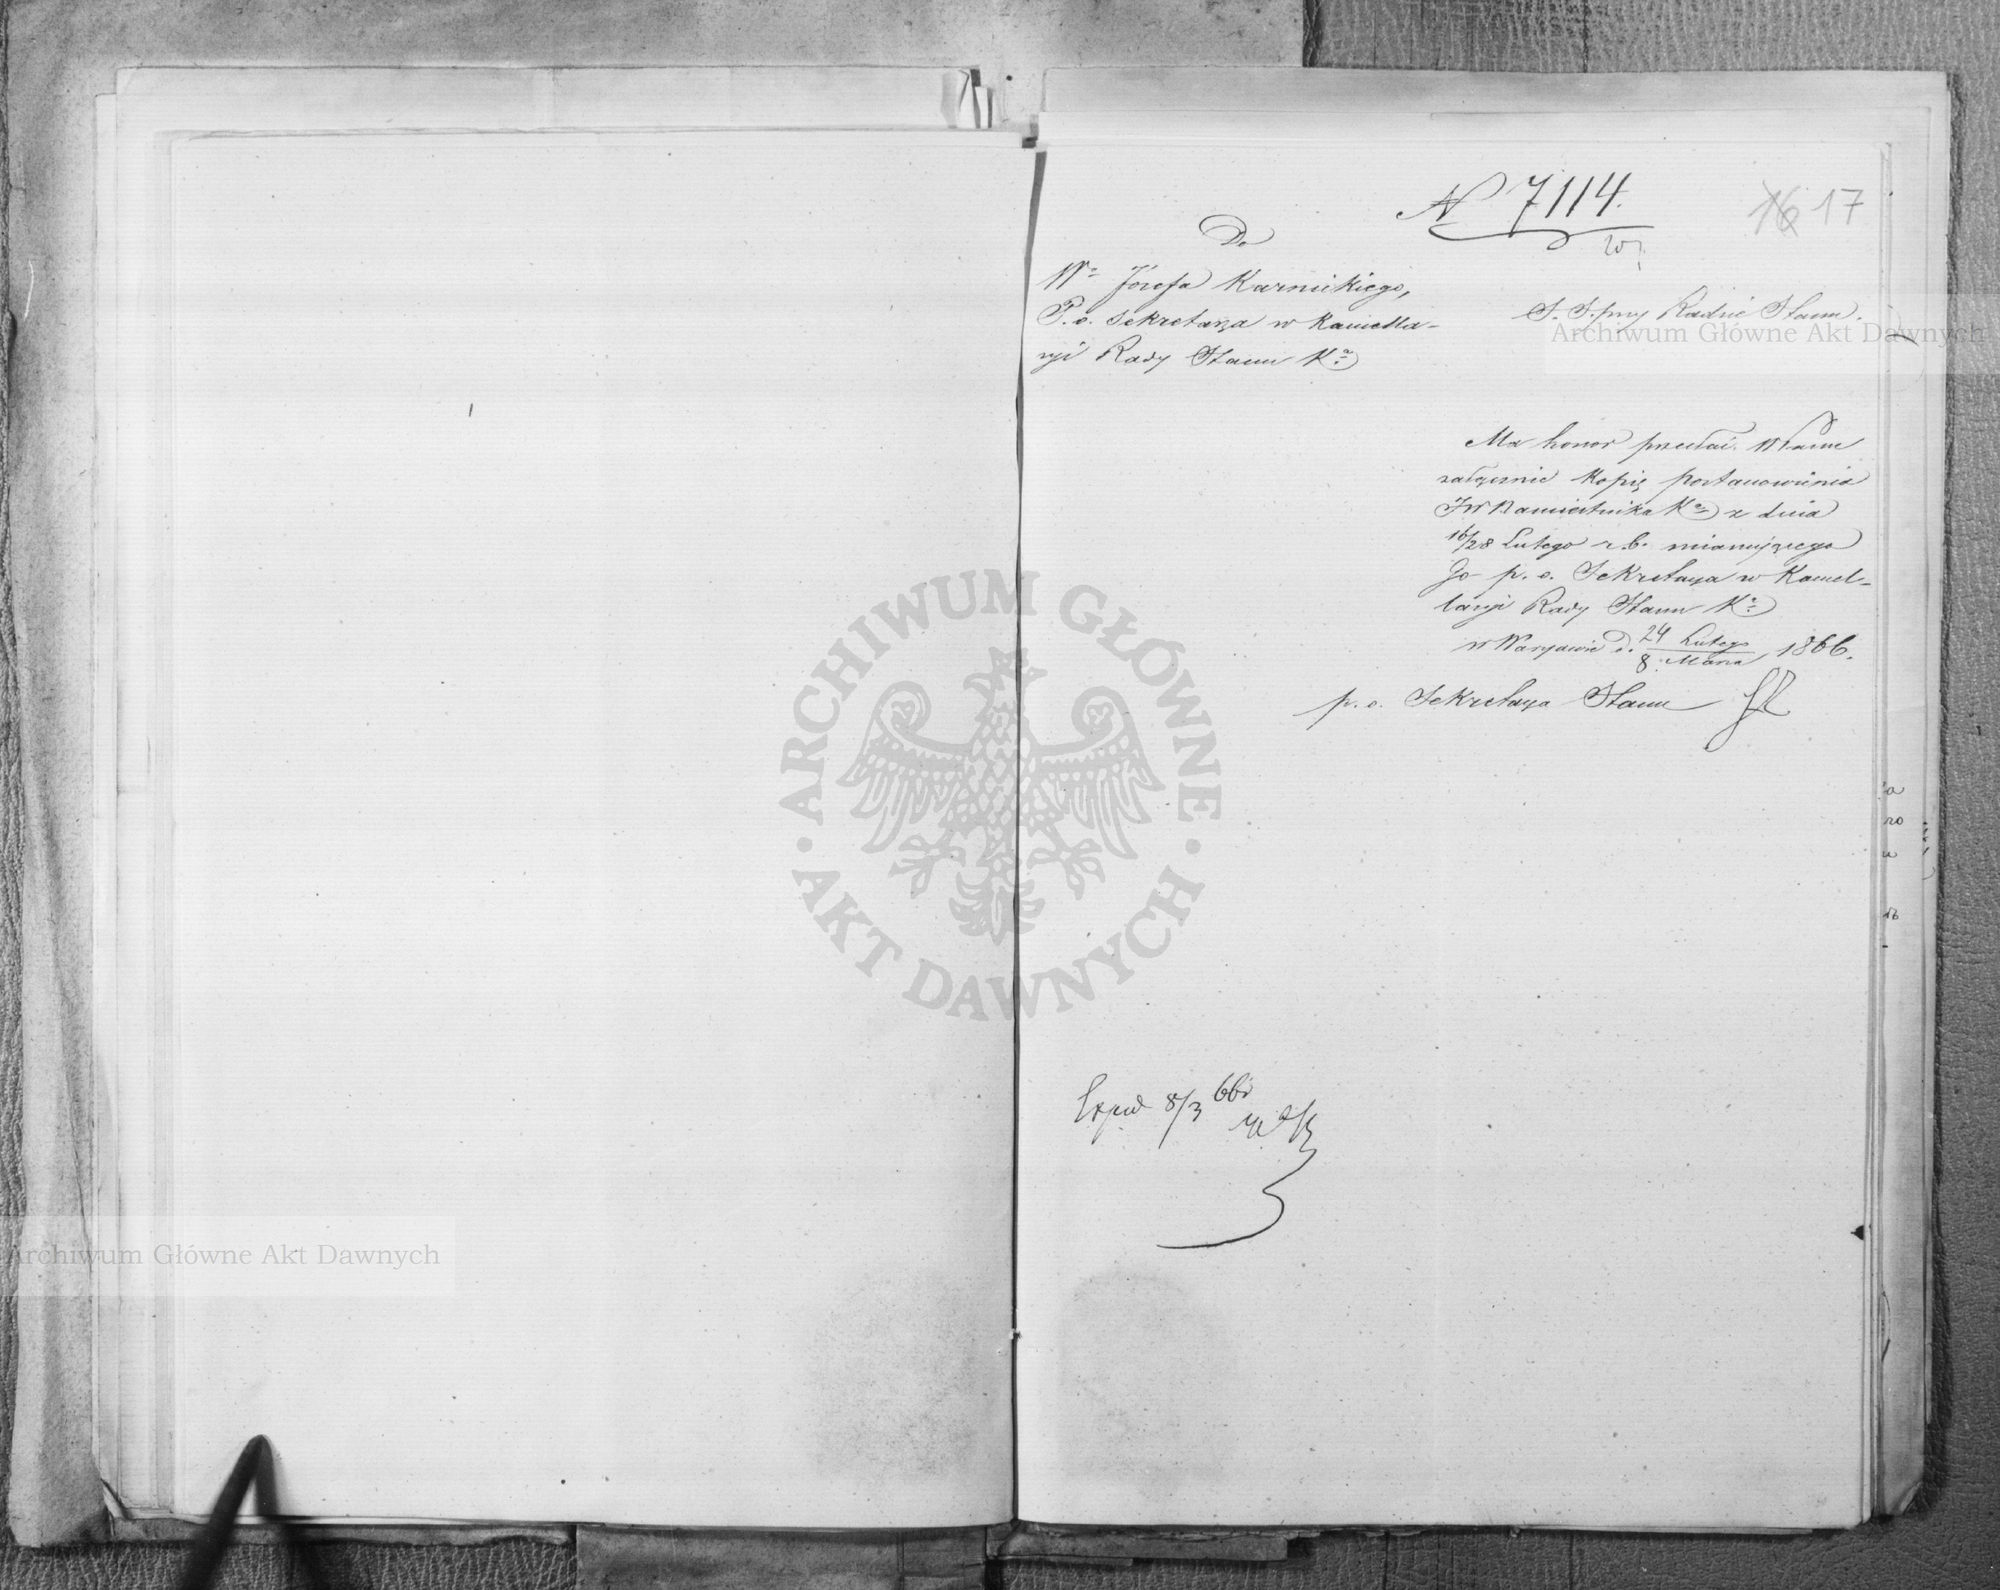 N 7114.
16 17
Do
Wo Józefa Karnickiego,
P. o. Sekretarza w Kancella-
ryi Rady Stanu Ka
S. S. przy Radzie Stanu.
Ma honor przesłać WPanu
załącznie kopię postanowienia
JW Namiestnika Ka z dnia
16/28 Lutego r. b. mianującego
Go p. o. Sekretarza w Kancel-
laryi Rady Stanu Ka
w Warszawie d. 24 Lutego / 8 Marca 1866.
p. o. Sekretarza Stanu
Exped 8/3 66
Archiwum Główne Akt Dawnych
ARCHIWUM GŁÓWNE
AKT DAWNYCH
Archiwum Główne Akt Dawnych